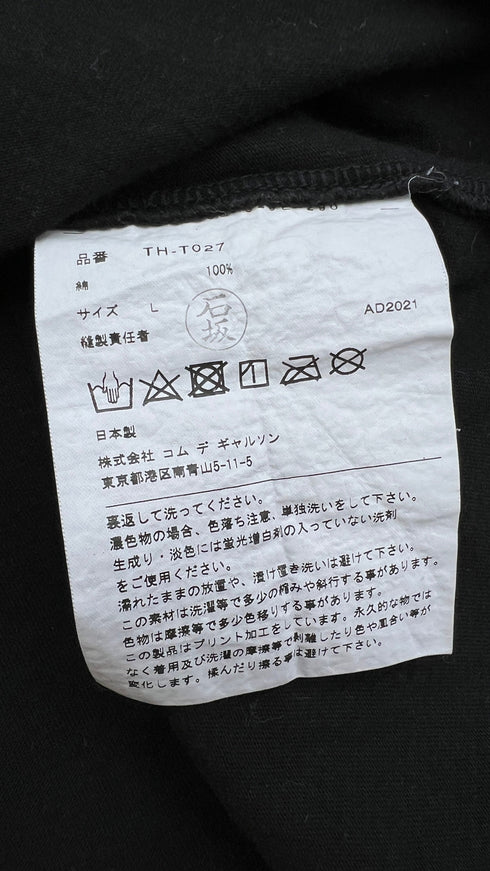 品番 TH-T027
綿 100%
サイズ L
石坂
AD2021
縫製責任者
日本製
株式会社 コム デ ギャルソン
東京都港区南青山5-11-5
裏返して洗ってください。
濃色物の場合、色落ち注意、単独洗いをして下さい。
生成り・淡色には蛍光増白剤の入っていない洗剤
をご使用ください。
濡れたままの放置や、漬け置き洗いは避けて下さい。
この素材は洗濯等で多少の縮みや斜行する事があります。
色物は摩擦等で多少色移りする事があります。
この製品はプリント加工をしています。永久的な物では
なく着用及び洗濯の摩擦等で剥離したり色や風合い等が
変化します。揉んだり擦る事は避けて下さい。